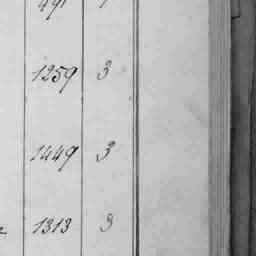 491
1259 3
1449 3
1313 3